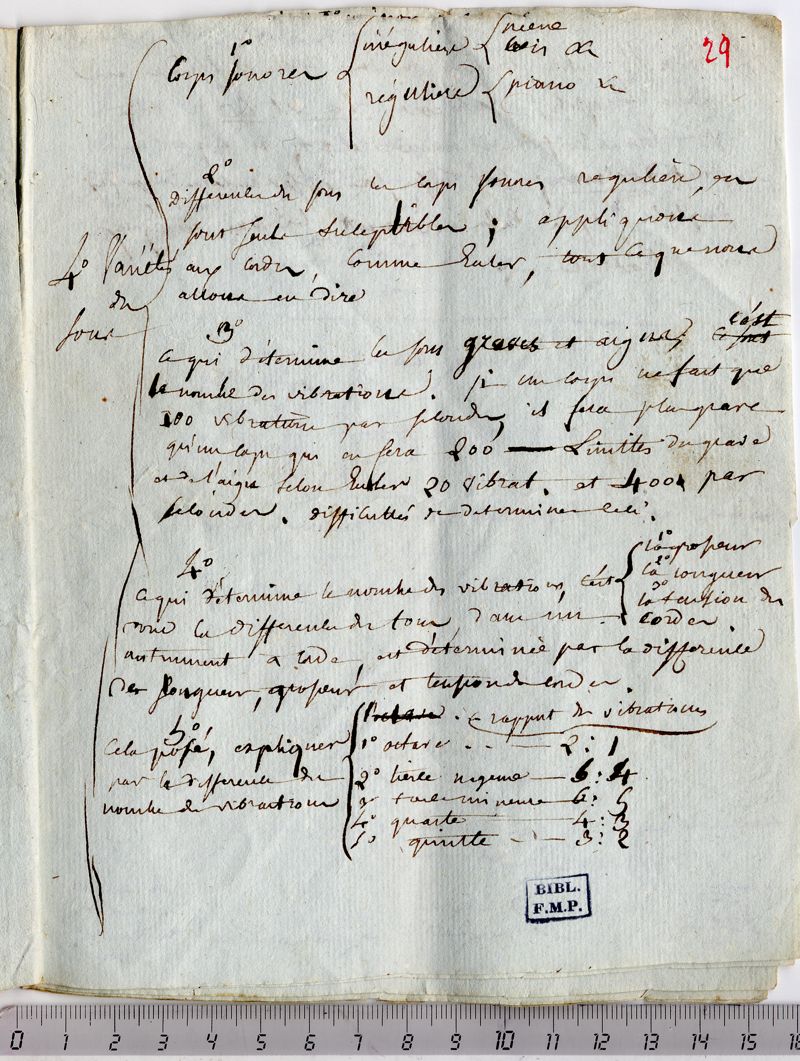 29
1º
Corps sonores { irréguliers { pierre
bois &c
réguliers { piano &c
2º
difference des sons les corps sonores reguliers, en
sont seuls suceptibles ; appliquons
4º Variétés aux cordes, comme Euler, tout ce que nous
des allons en dire
sons
3º
ce qui détermine les sons graves et aigus, c'ést
le nombre des vibrations. Si un corps ne fait que
100 vibrations par seconde, il sera plus grave
qu'un corps qui en fera 200 — Limittes du grave
et de l'aigu selon Euler 20 vibrat. et 4000 par
secondes. difficultés de determiner cela.
4º
ce qui détermine le nombre des vibrations, c'ést { 1º la grosseur
2º la longueur
3º la tension des
cordes.
donc la difference des tons, dans un
instrument a corde, est déterminée par la difference
des longueur, grosseur et tension des cordes.
5º
l'octave . rapport des vibrations
Cela posé, expliquer { 1º octave . . — 2 : 1
par la difference du 2º tierce majeure — 5 : 4
nombre de vibrations 3º tierce mineure — 6 : 5
4º quarte — 4 : 3
5º quintte - - — 3 : 2
BIBL.
F.M.P.
0 1 2 3 4 5 6 7 8 9 10 11 12 13 14 15 16